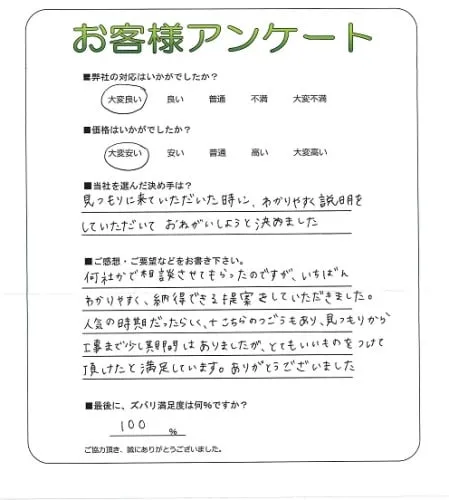 お客様アンケート
■弊社の対応はいかがでしたか？
大変良い 良い 普通 不満 大変不満
■価格はいかがでしたか？
大変安い 安い 普通 高い 大変高い
■当社を選んだ決め手は？
見つもりに来ていただいた時に、わかりやすく説明を
していただいて おねがいしようと決めました
■ご感想・ご要望などをお書き下さい。
何社かで相談させてもらったのですが、いちばん
わかりやすく、納得できる提案をしていただきました。
人気の時期だったらしく、+こちらのつごうもあり、見つもりから
工事まで少し期間はありましたが、とてもいいものをつけて
頂けたと満足しています。ありがとうございました
■最後に、ズバリ満足度は何%ですか？
100 %
ご協力頂き、誠にありがとうございました。